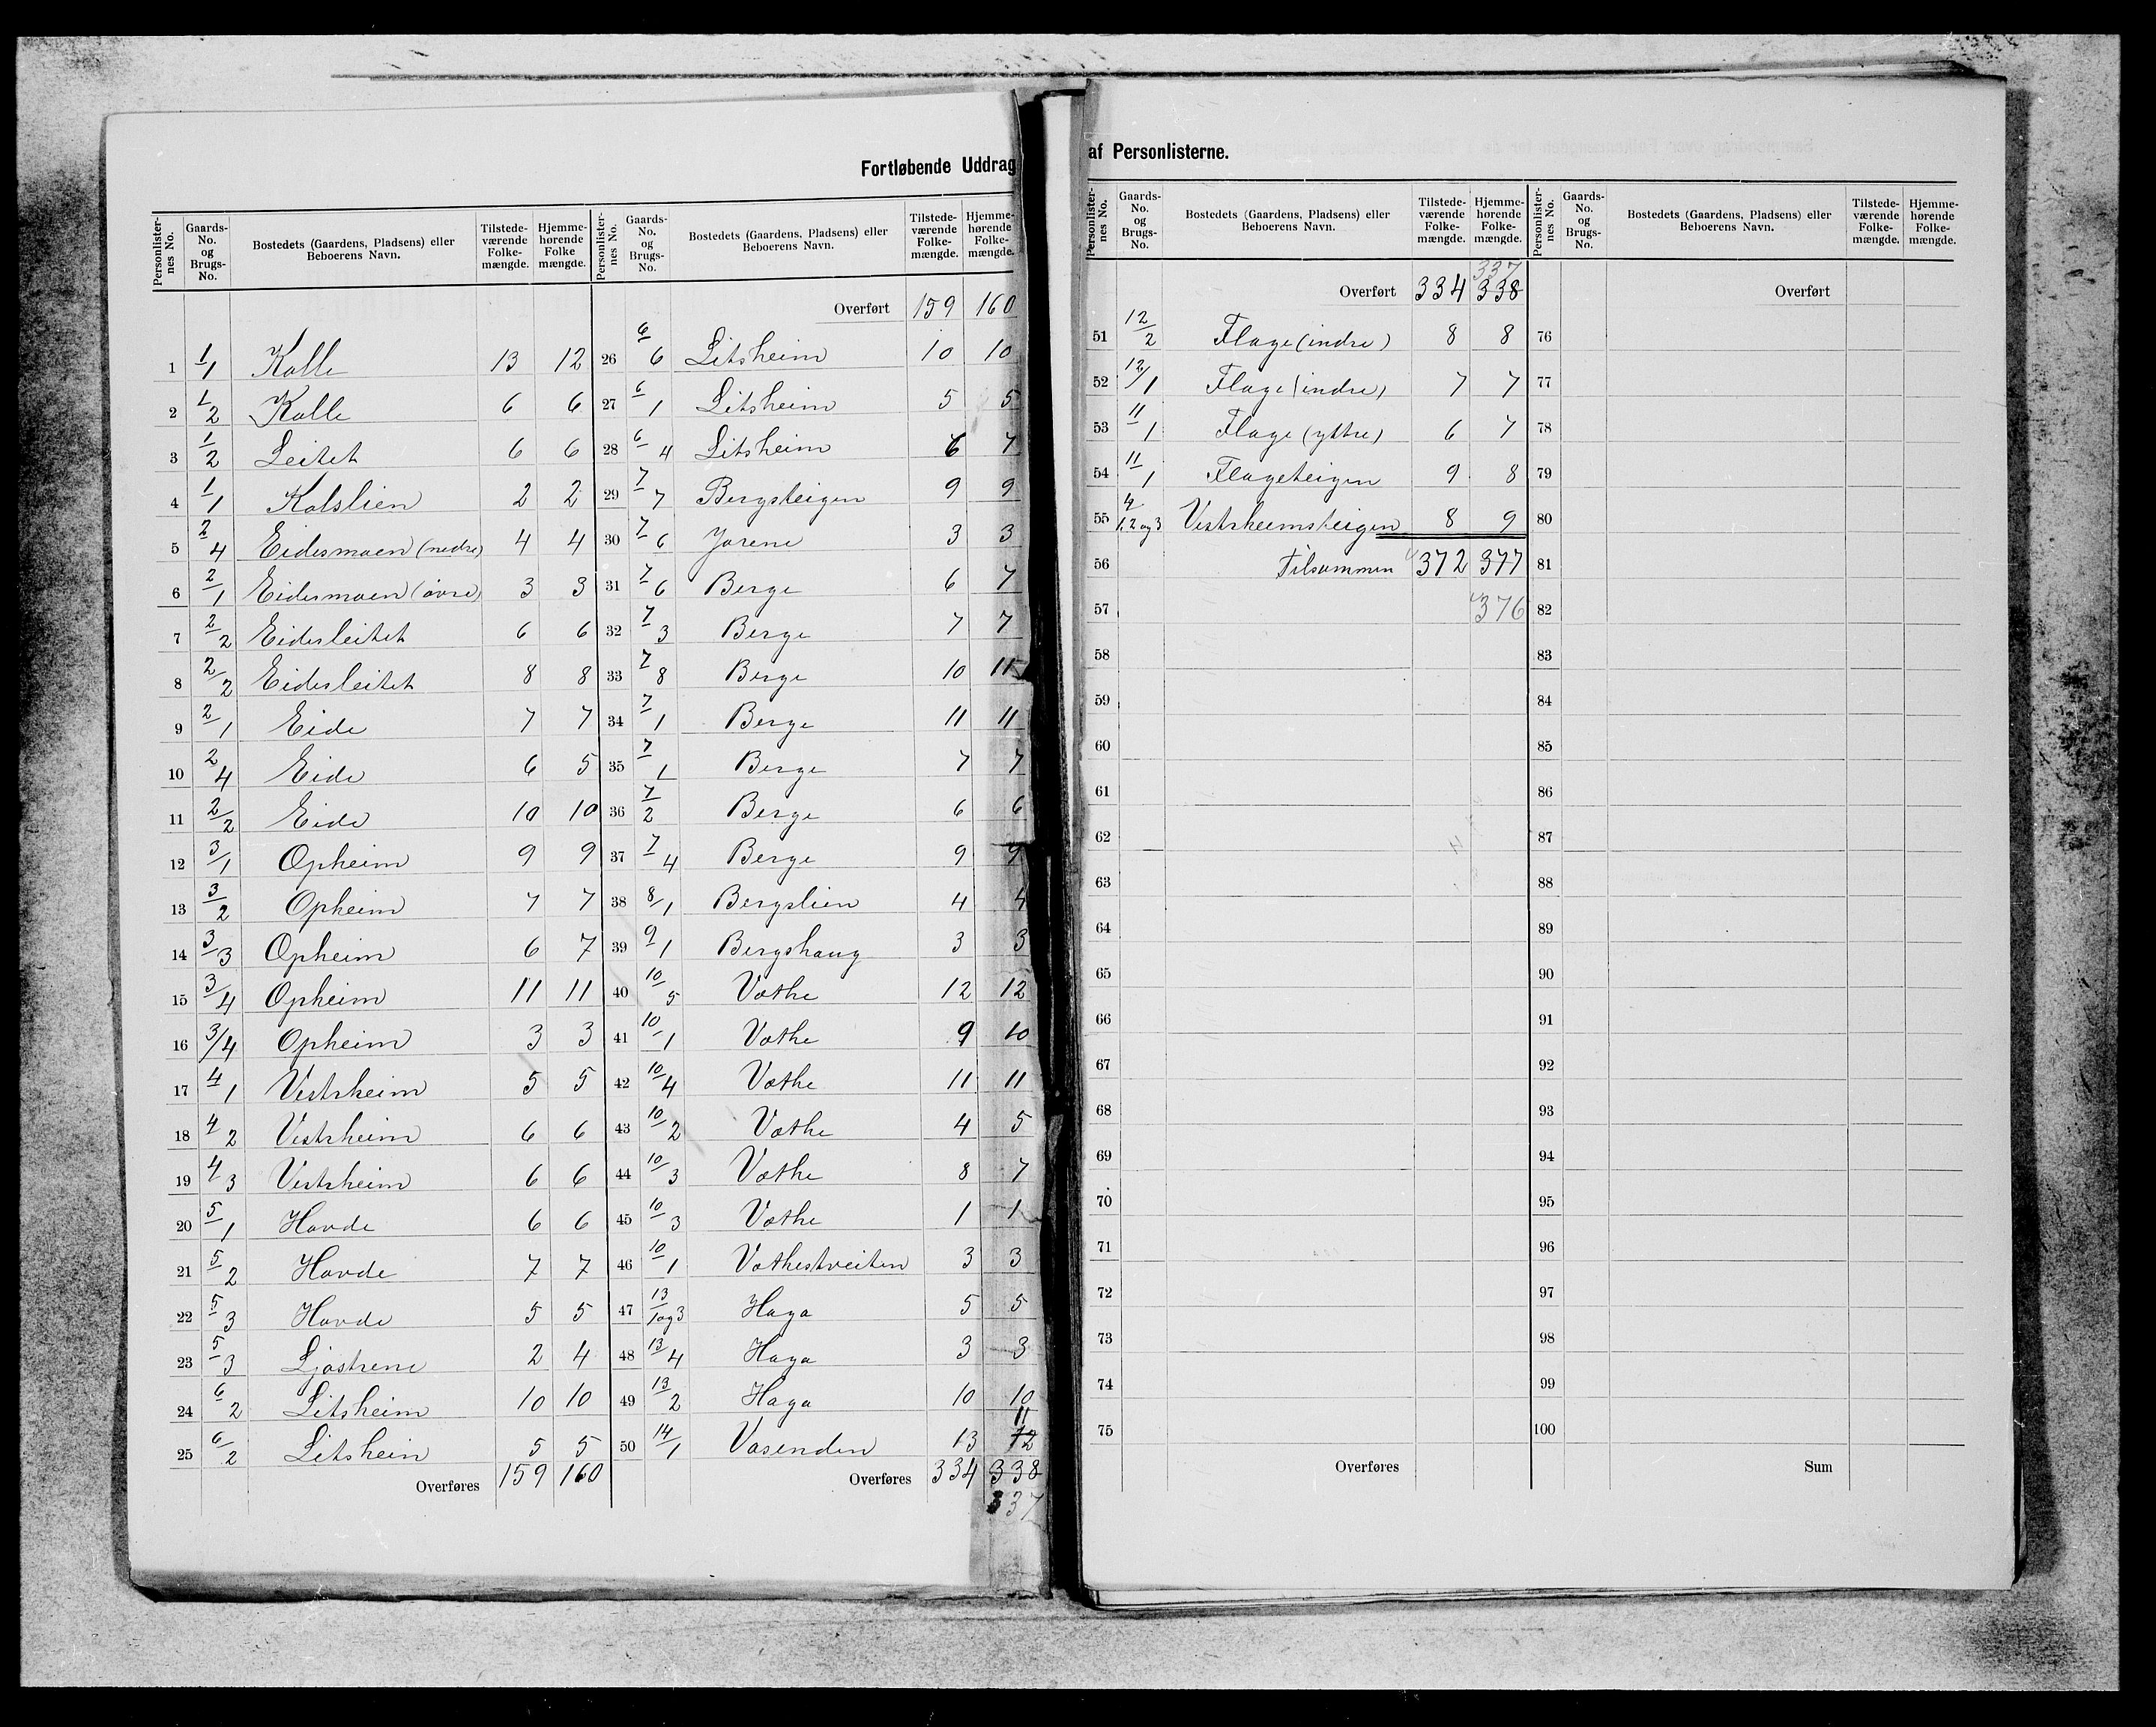 Fortløbende Uddrag
Personlister-nes No. | Gaards-No. og Brugs-No. | Bostedets (Gaardens, Pladsens) eller Beboerens Navn. | Tilstede-værende Folke-mængde. | Hjemme-hørende Folke mængde.
1 1/1 Kolle 13 12
2 1/2 Kolle 6 6
3 1/2 Leitet 6 6
4 1/1 Kolslien 2 2
5 2/4 Eidesmoen (nedre) 4 4
6 2/1 Eidesmoen (øvre) 3 3
7 2/2 Eidesleitet 6 6
8 2/2 Eidesleitet 8 8
9 2/1 Eide 7 7
10 2/4 Eide 6 5
11 2/2 Eide 10 10
12 3/1 Opheim 9 9
13 3/2 Opheim 7 7
14 3/3 Opheim 6 7
15 3/4 Opheim 11 11
16 3/4 Opheim 3 3
17 4/1 Vestrheim 5 5
18 4/2 Vestrheim 6 6
19 4/3 Vestrheim 6 6
20 5/1 Hovde 6 6
21 5/2 Hovde 7 7
22 5/3 Hovde 5 5
23 5/3 Ljostrene 2 4
24 6/2 Litsheim 10 10
25 6/2 Litsheim 5 5
Overføres 159 160
Personlister-nes No. | Gaards-No. og Brugs-No. | Bostedets (Gaardens, Pladsens) eller Beboerens Navn. | Tilstede-værende Folke-mængde. | Hjemme-hørende Folke-mængde.
Overført 159 160
26 6/6 Litsheim 10 10
27 6/1 Litsheim 5 5
28 6/4 Litsheim 6 7
29 7/7 Bergsteigen 9 9
30 7/6 Jorene 3 3
31 7/6 Berge 6 7
32 7/3 Berge 7 7
33 7/8 Berge 10 11
34 7/1 Berge 11 11
35 7/1 Berge 7 7
36 7/2 Berge 6 6
37 7/4 Berge 9 9
38 8/1 Bergslien 4 4
39 9/1 Bergshaug 3 3
40 10/5 Vothe 12 12
41 10/1 Vothe 9 10
42 10/4 Vothe 11 11
43 10/2 Vothe 4 5
44 10/3 Vothe 8 7
45 10/3 Vothe 1 1
46 10/1 Vothestveiten 3 3
47 13/1og3 Haga 5 5
48 13/4 Haga 3 3
49 13/2 Haga 10 10
50 14/1 Vasenden 13 12 11
Overføres 334 338
337
af Personlisterne.
Personlister-nes No. | Gaards-No. og Brugs-No. | Bostedets (Gaardens, Pladsens) eller Beboerens Navn. | Tilstede-værende Folke-mængde. | Hjemme-hørende Folke-mængde.
337
Overført 334 338
51 12/2 Flage (indre) 8 8
52 12/1 Flage (indre) 7 7
53 11/1 Flage (yttre) 6 7
54 11/1 Flageteigen 9 8
55 4/1,2 og 3 Vestrheimsteigen 8 9
56 Tilsammen 372 377
57 376
58
59
60
61
62
63
64
65
66
67
68
69
70
71
72
73
74
75
Overføres
Personlister-nes No. | Gaards-No. og Brugs-No. | Bostedets (Gaardens, Pladsens) eller Beboerens Navn. | Tilstede-værende Folke-mængde. | Hjemme-hørende Folke-mængde.
Overført
76
77
78
79
80
81
82
83
84
85
86
87
88
89
90
91
92
93
94
95
96
97
98
99
100
Sum